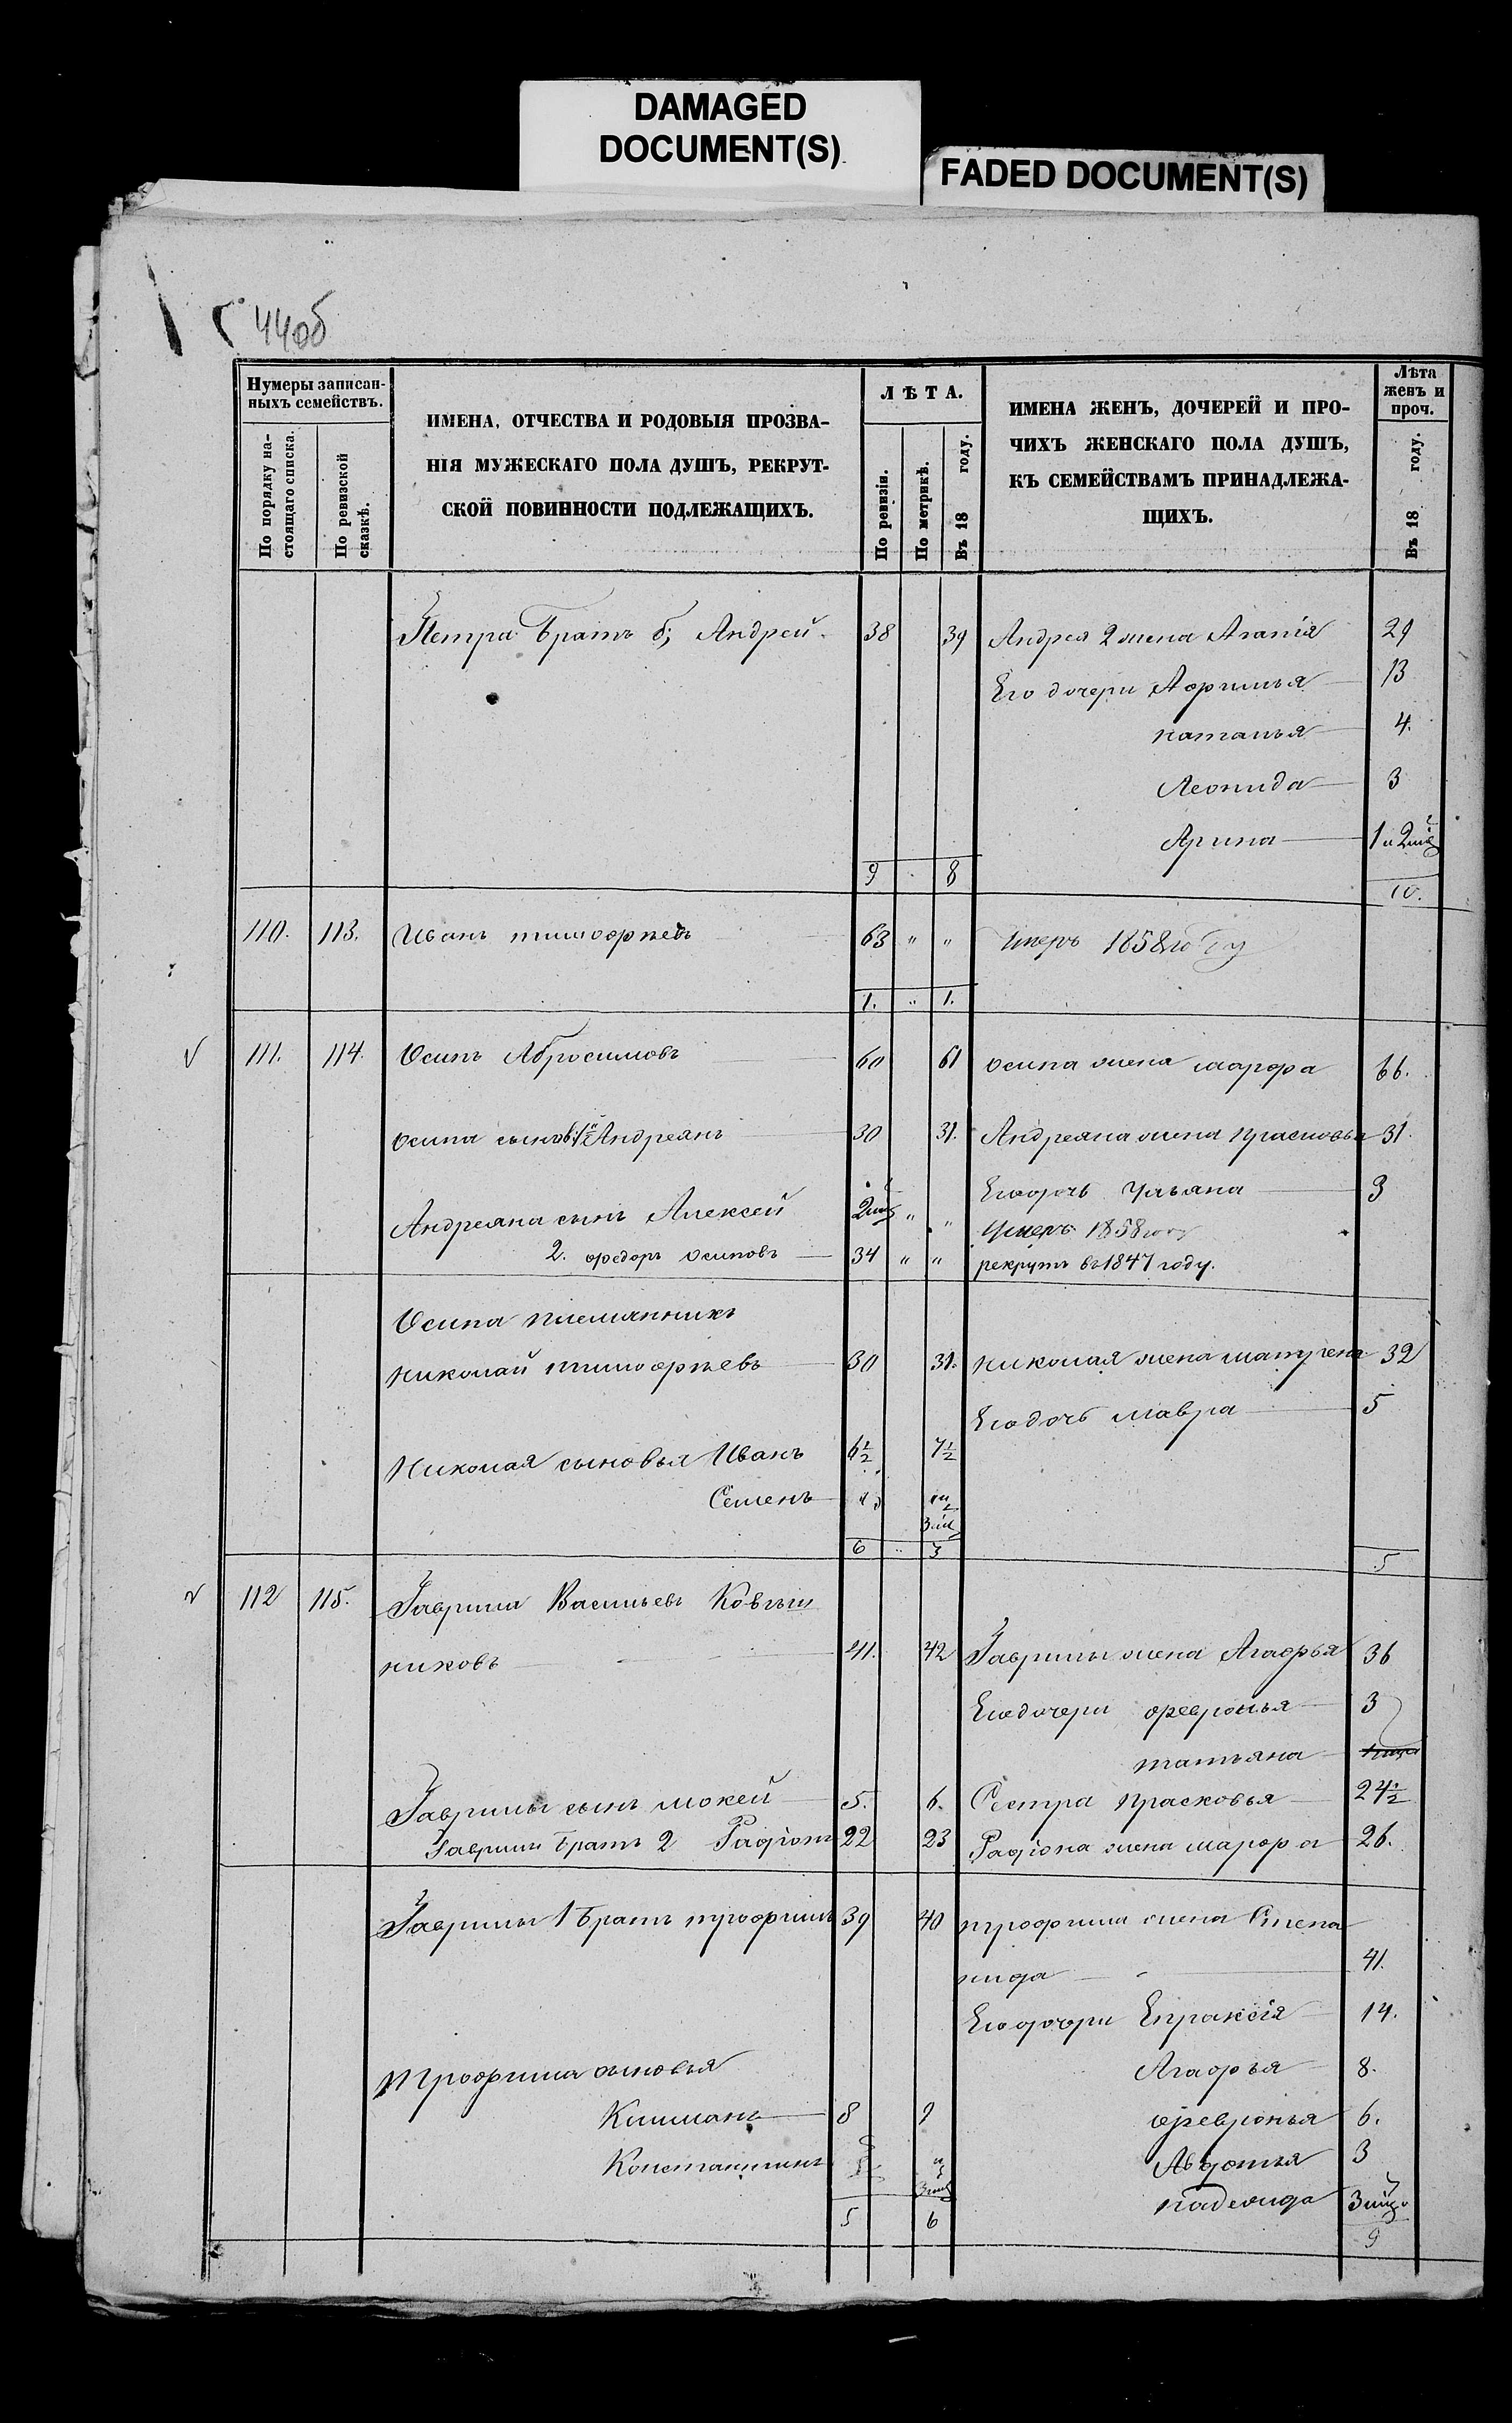 DAMAGED
DOCUMENT(S)
FADED DOCUMENT(S)
44об
Нумеры записан-
ныхъ семействъ.
По порядку на-
стоящаго списка.
По ревизской
сказкѣ.
ИМЕНА, ОТЧЕСТВА И РОДОВЫЯ ПРОЗВА-
НІЯ МУЖЕСКАГО ПОЛА ДУШЪ, РЕКРУТ-
СКОЙ ПОВИННОСТИ ПОДЛЕЖАЩИХЪ.
ЛѢТА.
По ревизіи.
По метрикѣ.
Въ 18 году.
ИМЕНА ЖЕНЪ, ДОЧЕРЕЙ И ПРО-
ЧИХЪ ЖЕНСКАГО ПОЛА ДУШЪ,
КЪ СЕМЕЙСТВАМЪ ПРИНАДЛЕЖА-
ЩИХЪ.
Лѣта
женъ и
проч.
Въ 18 году.
Петра братъ 6, Андрей 38 39 Андрея 2 жена Агапія 29
Его дочери Афимья 13
наталья 4.
Леонида 3
Арина 1 и 2 мѣс
9 8 10.
110. 113. Иванъ тимофѣевъ 63 " " Умеръ 1858 году
1. " 1.
111. 114. Осипъ Абросимовъ 60 61 осипа жена марфа 66.
осипа сыновья 1й Андреянъ 30 31. Андреяна жена прасковья 31.
Его дочь Ульяна 3
Андреяна сынъ Алексей 2 мѣс " " Умеръ 1858 году
2. федоръ осиповъ 34 " " рекрутъ въ 1847 году.
Осипа племянникъ
николай тимофѣевъ 30 31. николая жена матрена 32
Его дочь мавра 5
Николая сыновья Иванъ 6½ 7½
Семенъ
6 3 5
112 115. Гаврила Васильевъ Ковгыш
никовъ 41. 42 Гаврилы жена Агафья 36
Его дочери февронья 3
татьяна
Гаврилы сынъ мокей 5. 6. Сестра прасковья 24½
Гаврилы братъ 2 Радіонъ 22 23 Радіона жена марфа 26.
Гаврилы 1 братъ трофимъ 39 40 трофима жена Степа
нида 41.
Его дочери Епраксія 14.
трофима сыновья Агафья 8.
Климанъ 8 9 февронья 6.
Константинъ Авдотья 3
надежида 3 мѣс
5 6 9